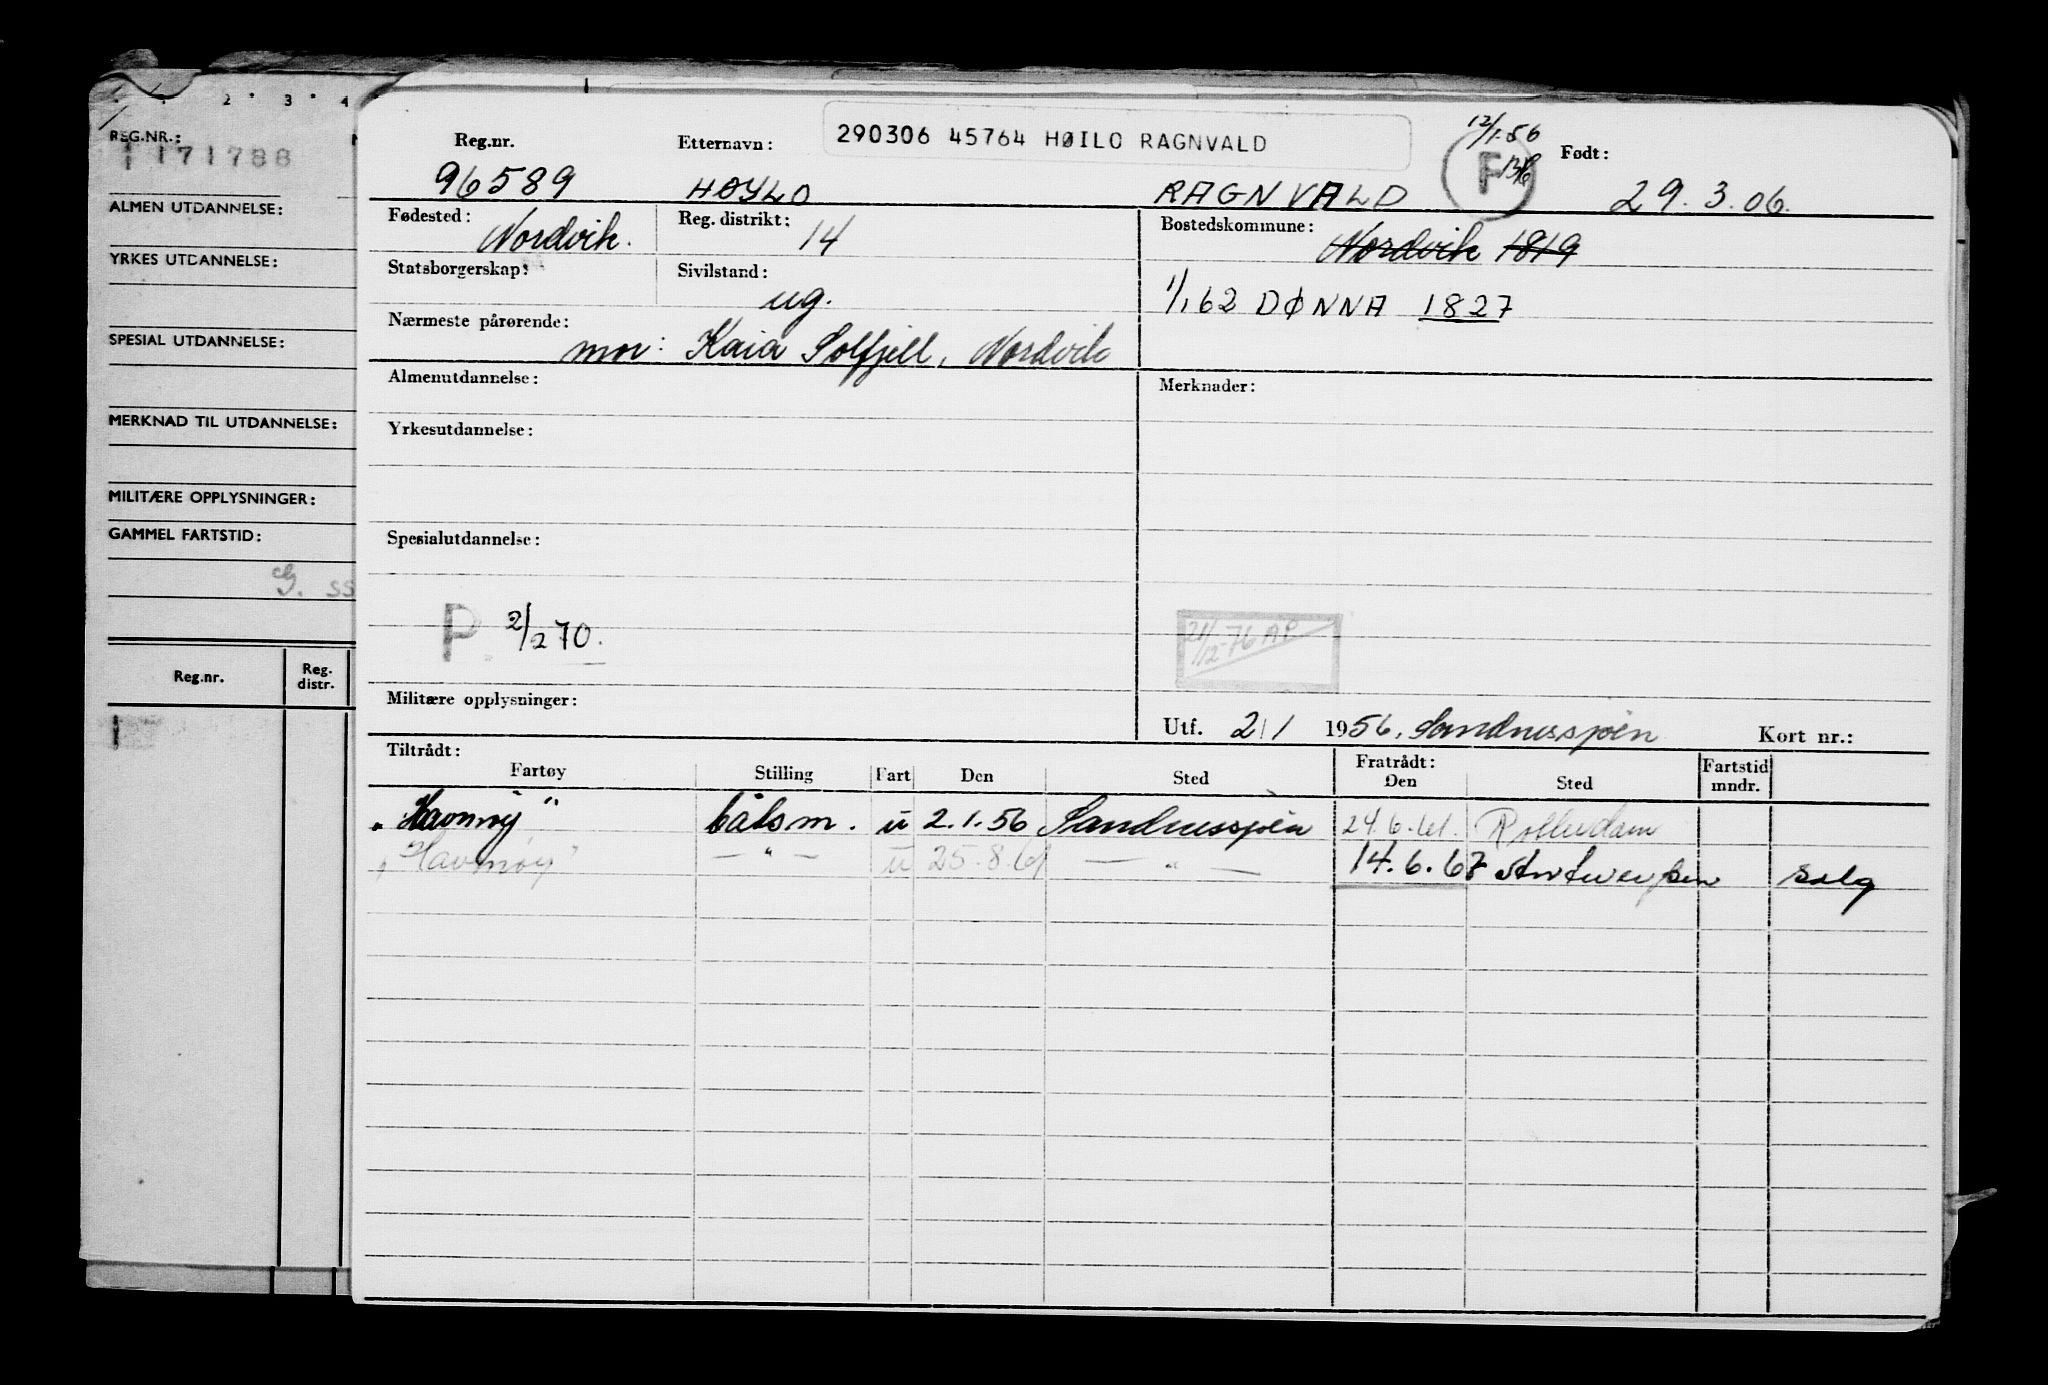 2 3 4
REG.NR.:
171788
ALMEN UTDANNELSE:
YRKES UTDANNELSE:
SPESIAL UTDANNELSE:
MERKNAD TIL UTDANNELSE:
MILITÆRE OPPLYSNINGER:
GAMMEL FARTSTID:
Reg.nr. Reg. distr.
290306 45764 HØILO RAGNVALD
12/1-56
F
Reg.nr. Etternavn: Født:
96589 HØYLO RAGNVALD 29.3.06.
Fødested: Nordvik. Reg. distrikt: 14 Bostedskommune: Nordvik 1819
Statsborgerskap: Sivilstand: ug. 1/1 62 DØNNA 1827
Nærmeste pårørende: mor: Kaia Solfjell, Nordvik
Almenutdannelse: Merknader:
Yrkesutdannelse:
Spesialutdannelse:
P 2/2 70.
21/12-76 AP
Militære opplysninger:
Utf. 2/1 1956, Sandnessjøen Kort nr.:
Tiltrådt: Fratrådt:
Fartøy Stilling Fart Den Sted Den Sted Fartstid mndr.
"Havnøy" båtsm. u 2.1.56 Sandnessjøen 24.6.61. Rotterdam
"Havnøy" —"— u 25.8.61 —"— 14.6.67 Antwerpen salg